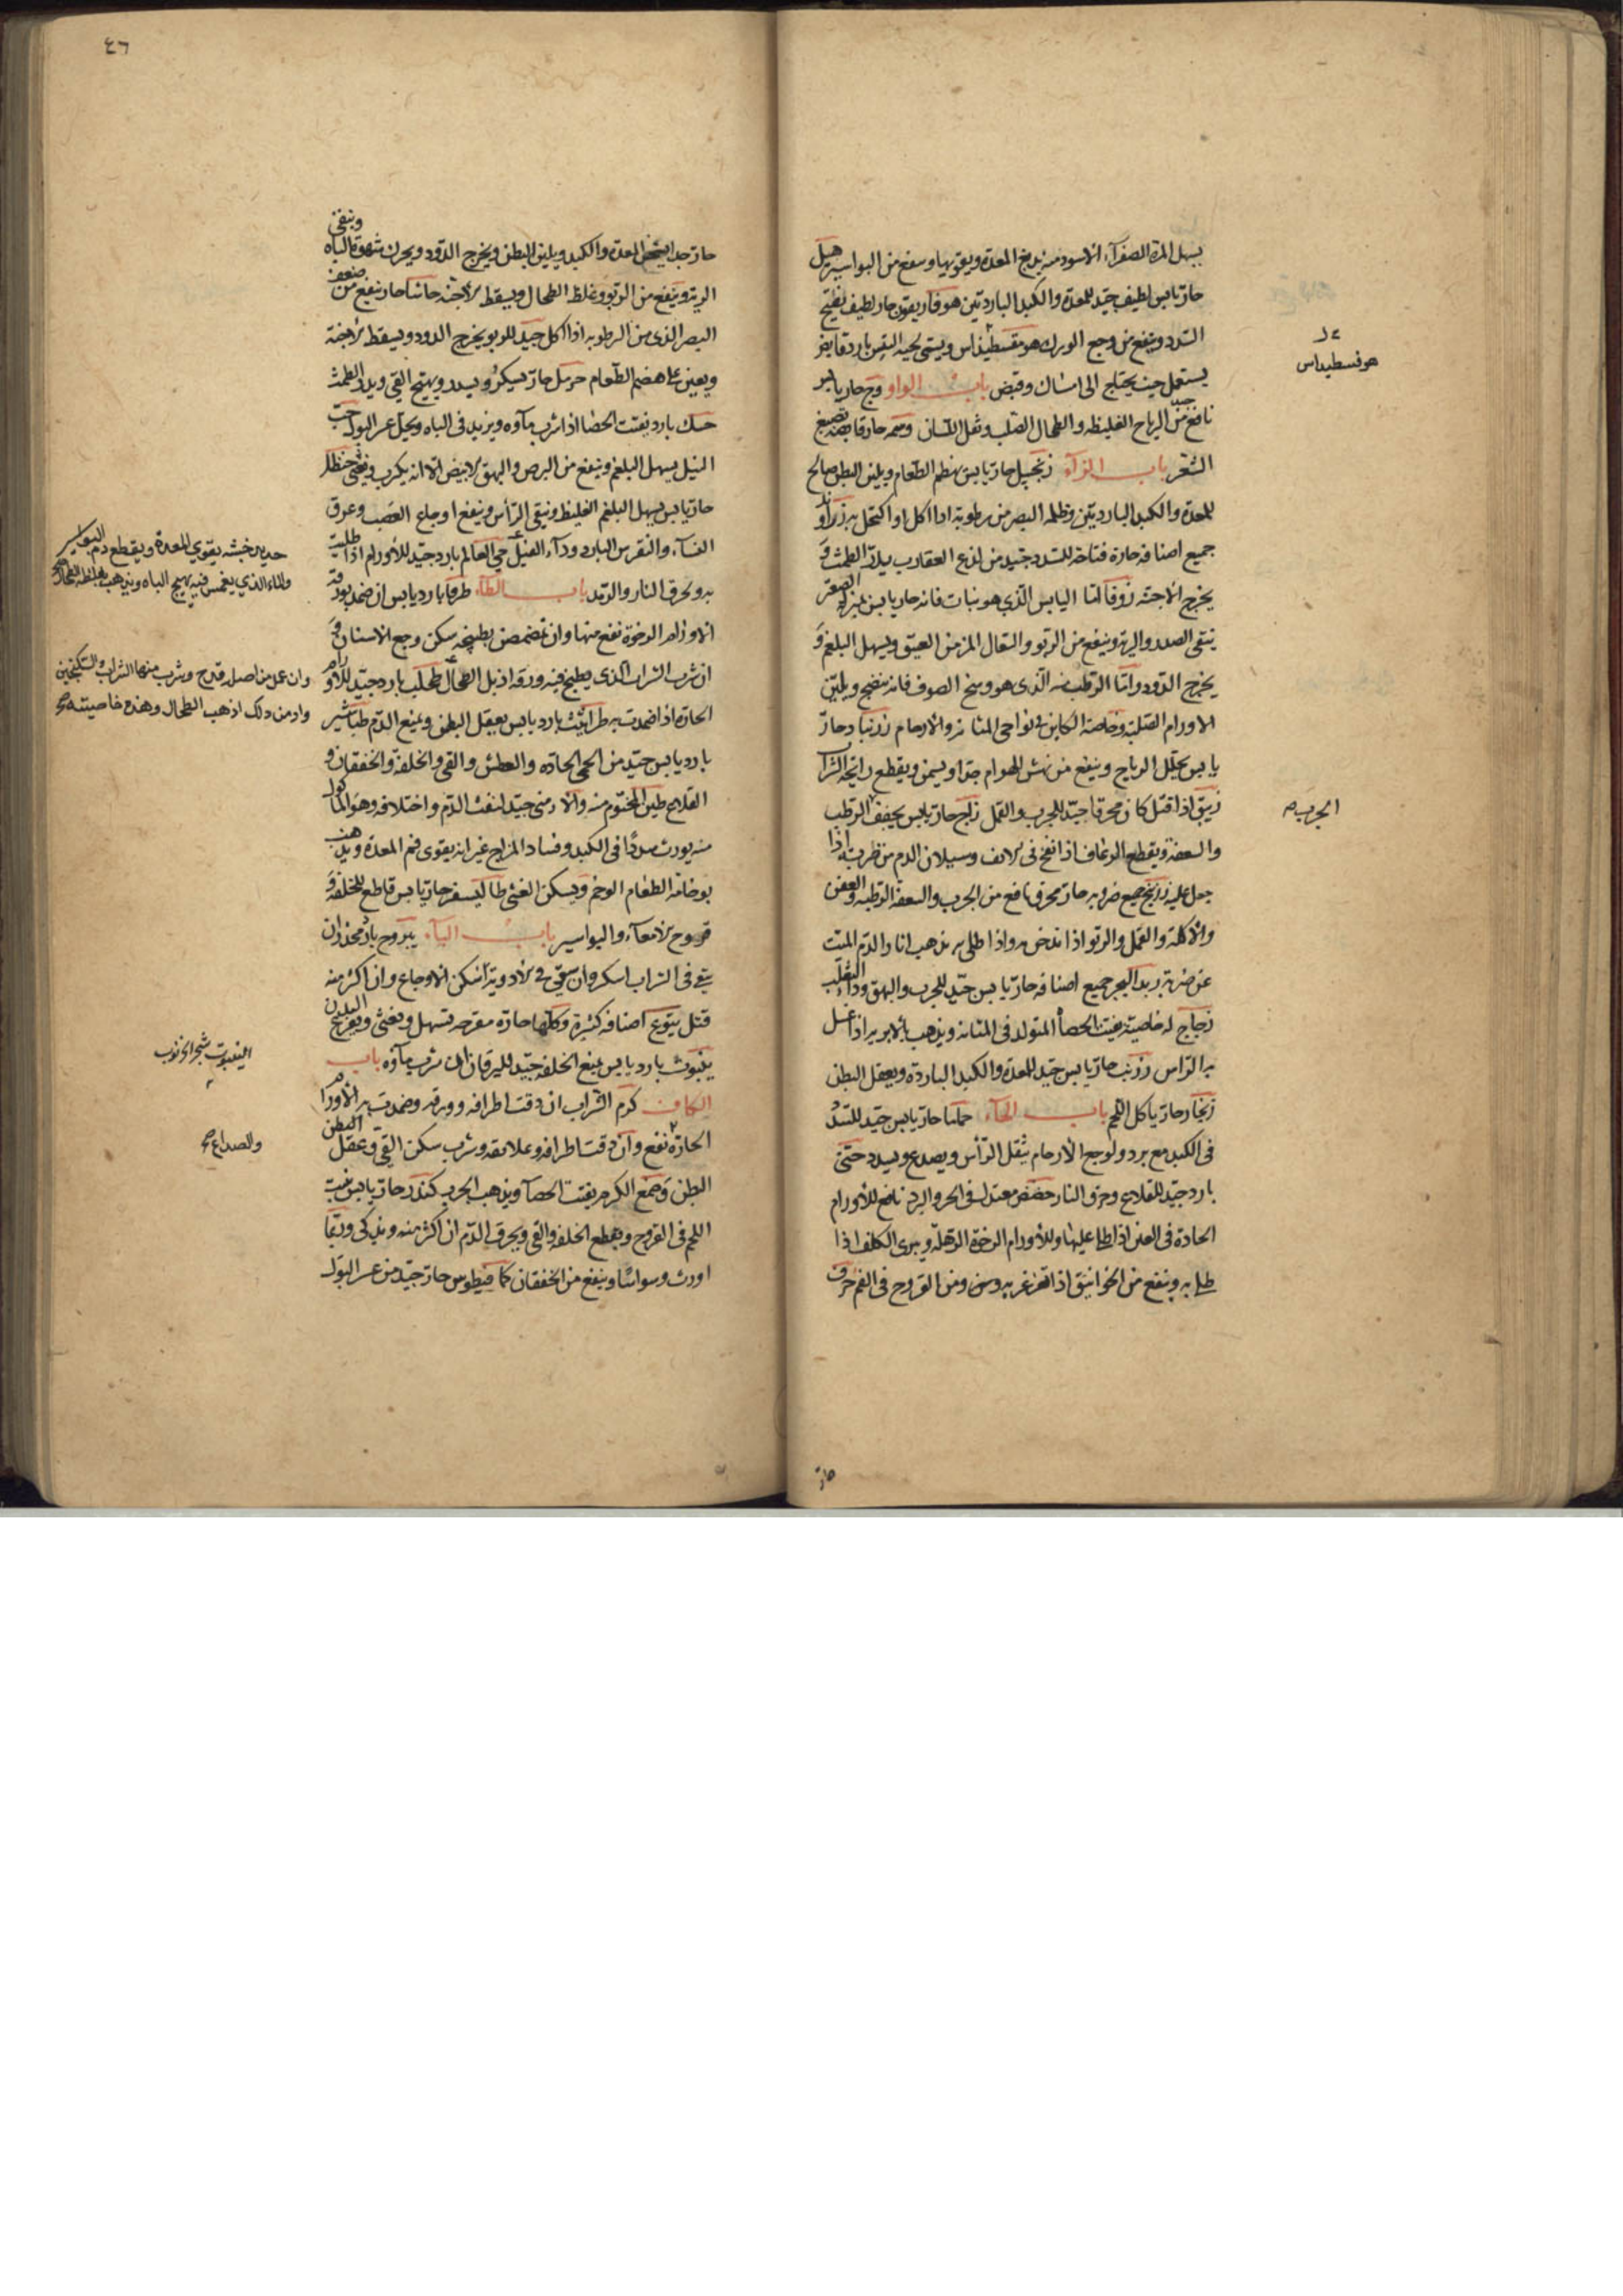 يسهل المرة الصفرآء الاسود منه يدبغ المعدة ويقويها وينفع من البواسير هيل
حار يابس لطيف جيد للمعدة والكبد الباردتين هوفاريقون حار لطيف يفتح
السدد وينفع من وجع الورك هو مقسطيداس ويسمى لحية التيس بارد قابض
يستعمل حيث يحتاج الى امساك وقبض باب الواو وج حار يابس
نافع من الرياح الغليظه والطحال الصلب وثقل اللسان جيد وسمه حار قابض يصبغ
الشعر باب الزآء زنجبيل حار يابس يهضم الطعام ويلين البطن صالح
للمعدة والكبد الباردتين وظلمه البصر من رطوبة اذا اكل او اكتحل به زراوند
جميع اصنافه حارة فتاحة للسدد جيد من لذع العقارب يدر الطمث و
يخرج الاجنة زوفا اما اليابس الذي هو نبات فانه حار يابس بمنزلة الصعتر
ينقى الصدر والرية وينفع من الربو والسعال المزمن العتيق ويسهل البلغم و
يخرج الدود واما الرطب منه الذى هو وسخ الصوف فانه ينضج ويلين
الاورام الصلبة وخاصة الكاين فى نواحى المثانة والارحام زرنباد حار
يابس يحلل الرياح وينفع من نهش الهوام جدا ويسمن ويقطع رايحة الشراب
زيبق اذا قتل كان محرقا جيد للجرب والقمل زاج حار يابس يجفف الرطب
والسعفة ويقطع الرعاف اذا نفخ فى الانف وسيلان الدم من ضربة اذا
جعل عليه زرنيخ جميع ضروبه حار محرق نافع من الجرب والسعفة الرطبة والعفن
والاكلة والقمل والربو اذا تدخن به واذا طلى به يذهب اثار الدم الميت
عن ضربة زبد البحر جميع اصنافه حار يابس جيد للجرب والبهق وداء الثعلب
زجاج له خاصية يفتت الحصا المتولد فى المثانة ويذهب بالابرية اذا غسل
به الراس زرنب حار يابس جيد للمعدة والكبد الباردة ويعقل البطن
زنجار حار ياكل اللحم باب الحآء حماما حار يابس جيد للسدد
فى الكبد مع برد ولوجع الارحام يثقل الرأس ويصدع ويسدد حنى
بارد جيد للقلاع وحرق النار حضض معتدل فى الحر والبرد نافع للاورام
الحادة فى العين اذا طلى عليها وللاورام الرخوة الرهلة ويبرى الكلف اذا
طلى به وينفع من الخوانيق اذا تغرغر به ومن القروح فى الفم حرف
هوفسطيداس
الجرب صح
حار
٤٦
حار جدا يسخن المعدة والكبد ويلين البطن ويخرج الدود ويحرك شهوة الباه وينقى
الرية وينفع من الربو وغلظ الطحال ويسقط الاجنة حاشا حار ينفع من ضعف
البصر الذى من الرطوبه اذا اكل جيد للربو يخرج الدود ويسقط الاجنة
ويعين على هضم الطعام حرمل حار يسكر ويسدد ويهيج القى ويدر الطمث
حسك بارد يفتت الحصا اذا شرب مآوه ويزيد فى الباه ويحل عسر البول حب
النيل يسهل البلغم وينفع من البرص والبهق الابيض الا انه يكرب ويغثى حنظل
حار يابس يسهل البلغم الغليظ وينقى الرأس وينفع اوجاع العصب وعرق
النسآء والنقرس البارد ودآء الفيل حى العالم بارد جيد للاورام اذا طليت
به وحرق النار والرمد باب الطآء طرفا بارد يابس ان ضمد بورقه
الاورام الرخوة نفع منها وان تمضمض بطبيخه سكن وجع الاسنان و
ان شرب الشراب الذى يطبخ فيه ورقه اذبل الطحال طحلب بارد جيد للاورام
الحارة اذا ضمدت به طراثيث بارد يابس يعقل البطن ويمنع الدم طباشير
بارد يابس جيد من الحمى الحادة والعطش والقى والخلفة والخفقان و
القلاع طين المختوم منه والارمنى جيد لنفث الدم واختلافه وهو الماكول
منه يورث سددا فى الكبد وفساد المزاج غير انه يقوى فم المعدة ويذهب
بوخامة الطعام الوخم ويسكن الغثى طاليسفر حار يابس قاطع للخلفة و
قروح الامعآء والبواسير باب اليآء يبروح بارد مخدر ان
سقى فى الشراب اسكر وان سقى فى الادوية اسكن الاوجاع وان اكثر منه
قتل يتوع اصنافه كثيرة وكلها حارة مقرحه تسهل وتغثى وتقرح البدن
ينبوت بارد يابس يمنع الخلفه جيد لليرقان ان شرب مآؤه باب
الكاف كرم الشراب ان دقت اطرافه وورقه وضمدت به الاورام
الحارة نفع وان دقت اطرافه وعلائقه وشرب سكن القى وعقل البطن
البطن وصمغ الكرم يفتت الحصآ ويذهب الجرب كندر حار يابس ينبت
اللحم فى القروح ويقطع الخلفه والقى ويحرق الدم ان اكثر منه ويذكى وربما
اورث وسواسًا وينفع من الخفقان كمافيطوس حار جيد من عسر البول
حديد خبثه يقوي المعدة ويقطع دم البواسير
والماء الذي يغمس فيه يهيج الباه ويذهب بغلظ الطحال صح
وان عمل من اصله قدح وشرب منها الشراب والسكنجبين
وادمن ذلك اذهب الطحال وهذه خاصيته صح
الينبوت شجر الخرنوب
والصداع صح